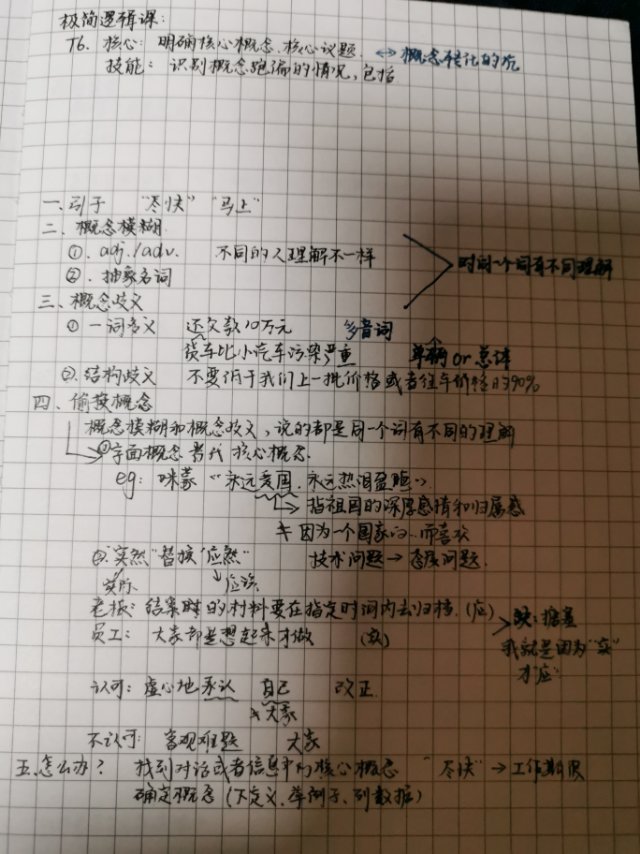 极简逻辑课:
T6. 核心: 明确核心概念、核心议题. ↔ 概念转化的坑
技能: 识别概念跑偏的情况, 包括
一、引子 "尽快" "马上"
二、概念模糊
①. adj./adv. 不同的人理解不一样
②. 抽象名词
对同一个词有不同理解
三、概念歧义
① 一词多义 还欠款10万元 多音词
货车比小汽车污染严重 单辆 or 总体
②. 结构歧义 不要倍于我们上一批价格或者往年价格的90%
四、偷换概念
概念模糊和概念歧义, 说的都是同一个词有不同的理解
①字面概念替代核心概念.
eg: 咪蒙 "永远爱国, 永远热泪盈眶".
↳ 指祖国的深厚感情和归属感
≠ 因为一个国家的..而喜欢
②. "实然"替换"应然" 技术问题 → 态度问题.
实际 应该
老板: 结案时的材料要在指定时间内去归档. (应)
员工: 大家都是想起来才做 (实)
我就是因为"实"
才"应"
认可: 虚心地承认 自己 改正.
≠ 大家
不认可: 客观难题 大家
五. 怎么办? 找到对话或者信息中的核心概念 "尽快" → 工作期限
确定概念 (下定义、举例子、列数据)